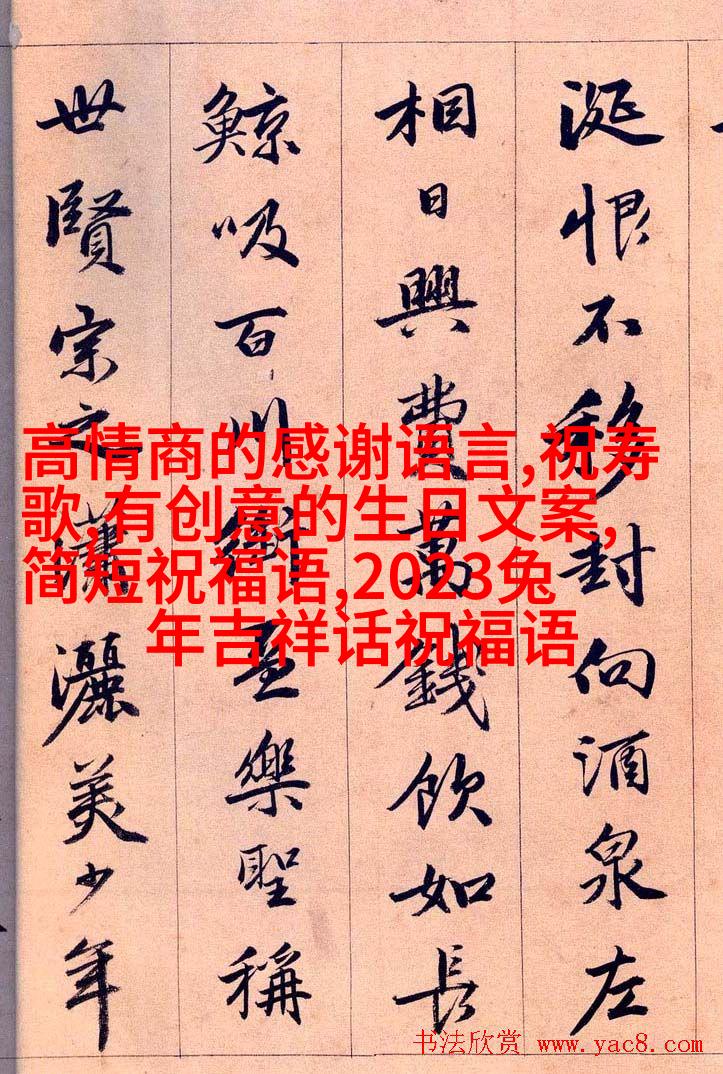 涎恨不移封向酒泉左
相日興費萬錢飲如長
鯨吸百川銜盃樂聖稱
世賢宗之瀟灑美少年
高情商的感谢语言,祝寿
歌,有创意的生日文案,
简短祝福语,2023兔
年吉祥话祝福语
书法欣赏 www.yac8.com